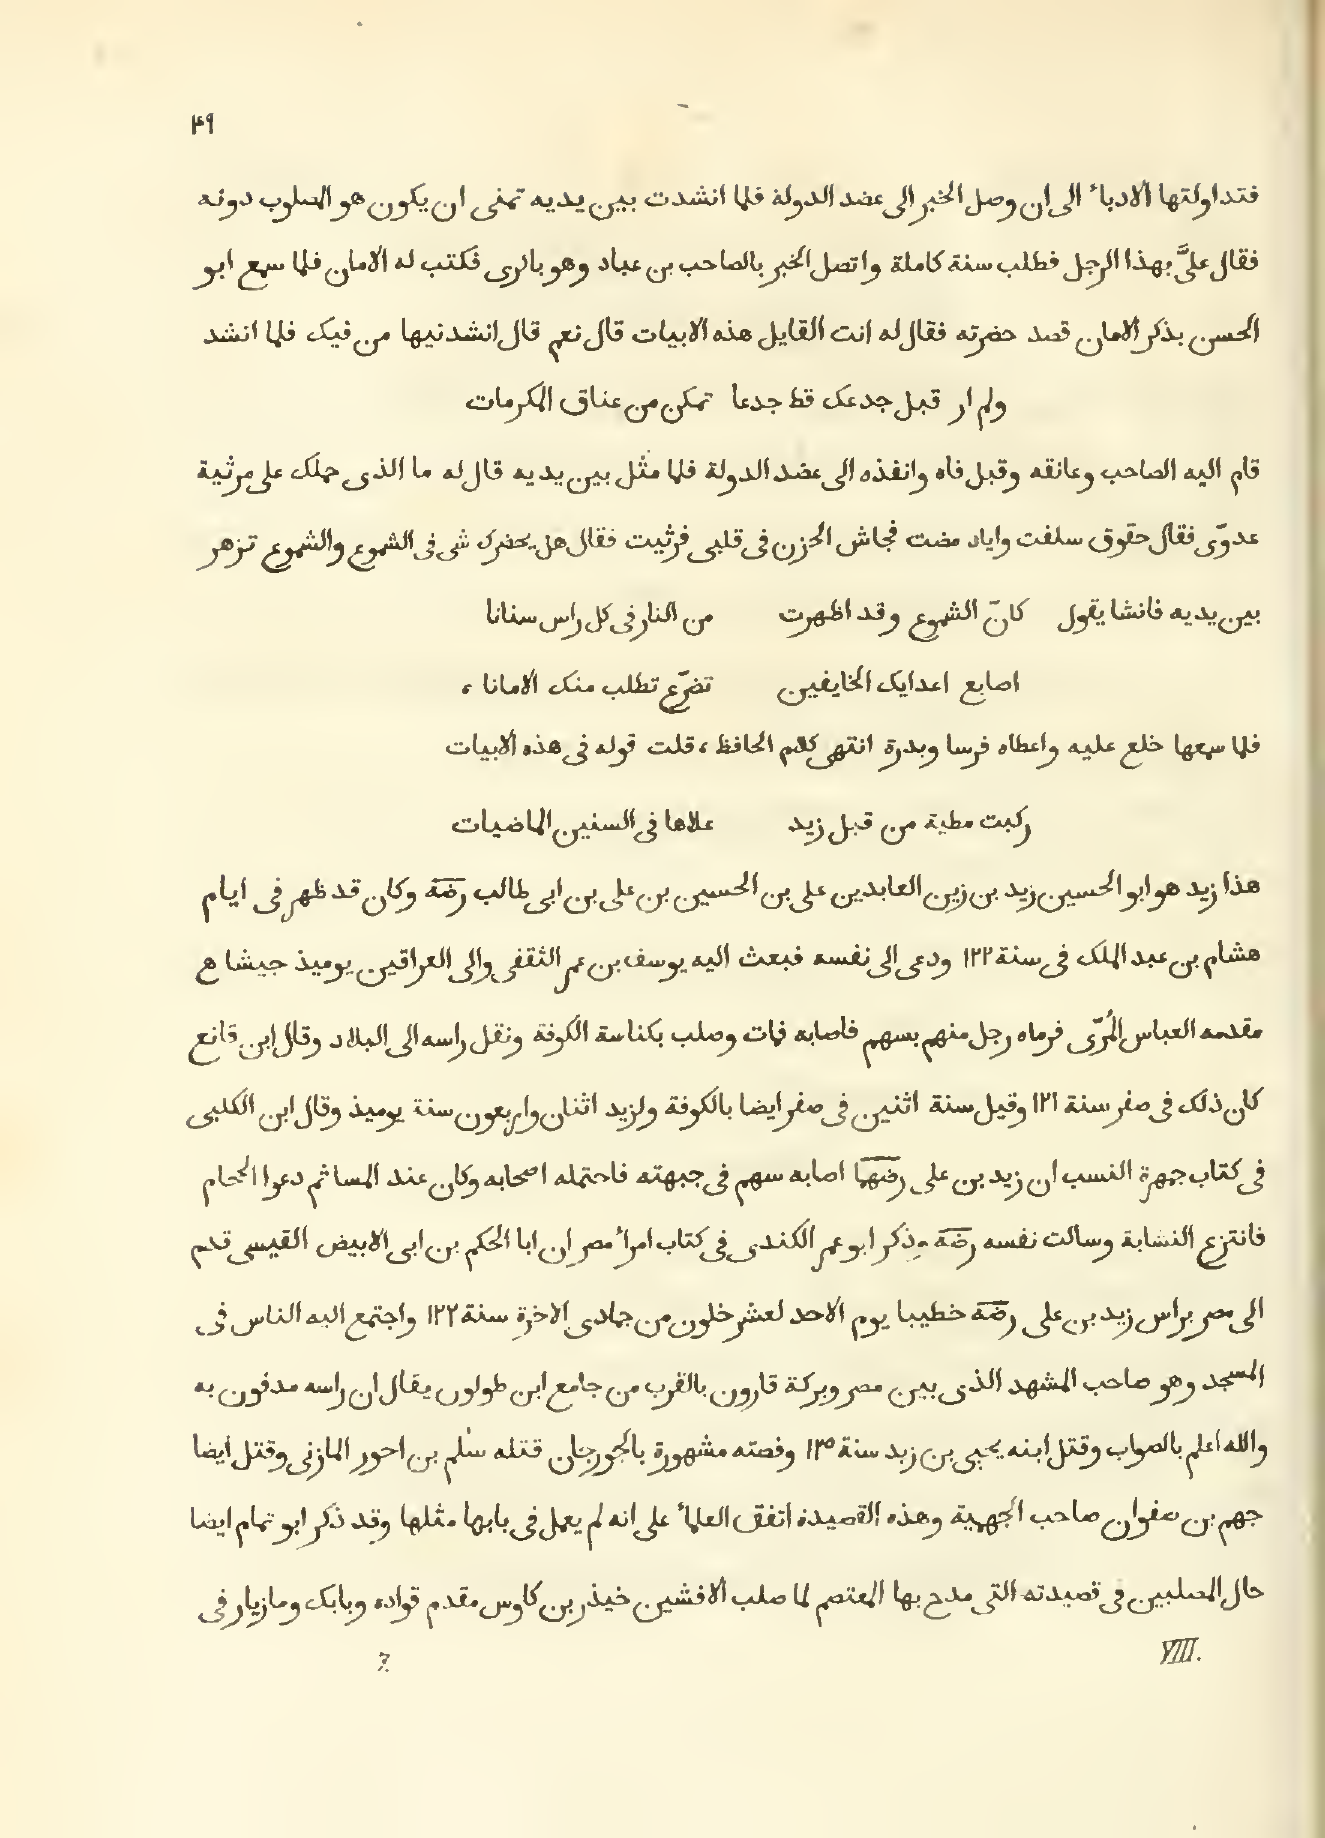 ۴۹
فتداولتها الادباء الى ان وصل الخبر الى عضد الدولة فلما انشدت بين يديه تمنى ان يكون هو المصلوب دونه
فقال علىَّ بهذا الرجل فطلب سنة كاملة واتصل الخبر بالصاحب بن عباد وهو بالرى فكتب له الامان فلما سمع ابو
الحسن بذكر الامان قصد حضرته فقال له انت القايل هذه الابيات قال نعم قال انشدنيها من فيك فلما انشد
ولم ار قبل جدعك قط جدعا تمكن من عناق المكرمات
قام اليه الصاحب وعانقه وقبل فاه وانفذه الى عضد الدولة فلما مثل بين يديه قال له ما الذى حملك على مرثية
عدوّى فقال حقوق سلفت واياد مضت فجاش الحزن فى قلبى فرثيت فقال هل يحضرك شى فى الشموع والشموع تزهر
بين يديه فانشا يقول كانّ الشموع وقد اظهرت من النار فى كل راس سنانا
اصابع اعدايك الخايفين تضرّع تطلب منك الامانا ،
فلما سمعها خلع عليه واعطاه فرسا وبدرة انتهى كلام الحافظ ، قلت قوله فى هذه الابيات
ركبت مطية من قبل زيد علاها فى السنين الماضيات
هذا زيد هو ابو الحسين زيد بن زين العابدين على بن الحسين بن على بن ابى طالب رضه وكان قد ظهر فى ايام
هشام بن عبد الملك فى سنة ١٢٢ ودعى الى نفسه فبعث اليه يوسف بن عمر الثقفى والى العراقين يوميذ جيشا ع
مقدمه العباس المُرّى فرماه رجل منهم بسهم فاصابه فمات وصلب بكناسة الكوفة ونقل راسه الى البلاد وقال ابن قانع
كان ذلك فى صفر سنة ١٢١ وقيل سنة اثنين فى صفر ايضا بالكوفة ولزيد اثنان واربعون سنة يوميذ وقال ابن الكلبى
فى كتاب جمهرة النسب ان زيد بن على رضهما اصابه سهم فى جبهته فاحتمله اصحابه وكان عند المسا ثم دعوا الحجام
فانتزع النشابة وسالت نفسه رضه وذكر ابو عمر الكندى فى كتاب امراء مصر ان ابا الحكم بن ابى الابيض القيسى قدم
الى مصر براس زيد بن على رضه خطيبا يوم الاحد لعشر خلون من جمادى الاخرة سنة ١٢٢ واجتمع اليه الناس فى
المسجد وهو صاحب المشهد الذى بين مصر وبركة قارون بالقرب من جامع ابن طولون يقال ان راسه مدفون به
والله اعلم بالصواب وقتل ابنه يحيى بن زيد سنة ١٢٥ وقصته مشهورة بالجورجان قتله سلم بن احور المازنى وقتل ايضا
جهم بن صفوان صاحب الجهمية وهذه القصيدة اتفق العلماء على انه لم يعمل فى بابها مثلها وقد ذكر ابو تمام ايضا
حال المصلبين فى قصيدته التى مدح بها المعتصم لما صلب الافشين خيذر بن كاوس مقدم قواده وبابك ومازيار فى
VIII. 7